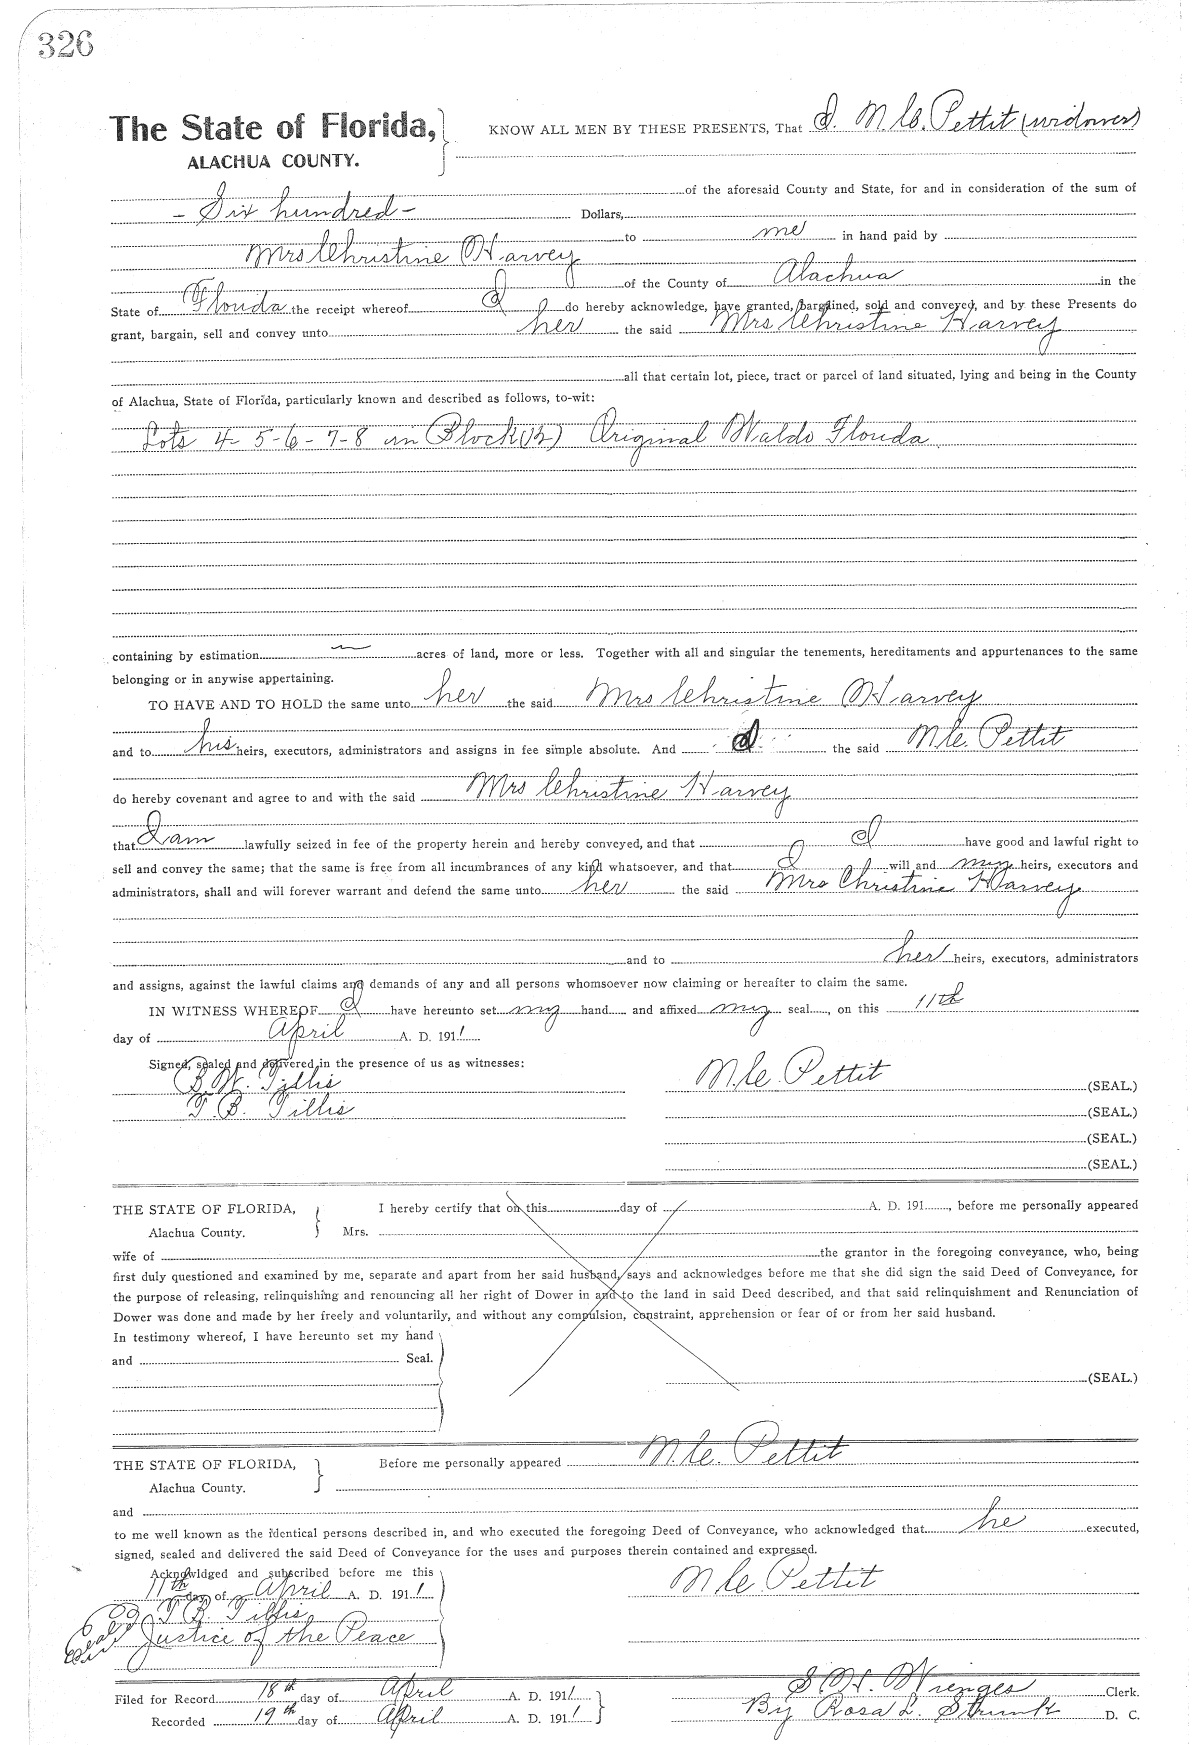 326
The State of Florida, KNOW ALL MEN BY THESE PRESENTS, That I. M. C. Pettit (widower)
ALACHUA COUNTY.
of the aforesaid County and State, for and in consideration of the sum of
- Six hundred - Dollars,
to me in hand paid by
Mrs Christine Harvey
of the County of Alachua in the
State of Florida the receipt whereof I do hereby acknowledge, have granted, bargained, sold and conveyed, and by these Presents do
grant, bargain, sell and convey unto her the said Mrs Christine Harvey
all that certain lot, piece, tract or parcel of land situated, lying and being in the County
of Alachua, State of Florida, particularly known and described as follows, to-wit:
Lots 4- 5-6-7-8 in Block (12) Original Waldo Florida
containing by estimation acres of land, more or less. Together with all and singular the tenements, hereditaments and appurtenances to the same
belonging or in anywise appertaining.
TO HAVE AND TO HOLD the same unto her the said Mrs Christine Harvey
and to his heirs, executors, administrators and assigns in fee simple absolute. And I the said M. C. Pettit
do hereby covenant and agree to and with the said Mrs Christine Harvey
that I am lawfully seized in fee of the property herein and hereby conveyed, and that I have good and lawful right to
sell and convey the same; that the same is free from all incumbrances of any kind whatsoever, and that I will and my heirs, executors and
administrators, shall and will forever warrant and defend the same unto her the said Mrs Christine Harvey
and to her heirs, executors, administrators
and assigns, against the lawful claims and demands of any and all persons whomsoever now claiming or hereafter to claim the same.
IN WITNESS WHEREOF I have hereunto set my hand and affixed my seal, on this 11th
day of April A. D. 1911.
Signed, sealed and delivered in the presence of us as witnesses:
B. W. Tillis M. C. Pettit (SEAL.)
T. B. Tillis (SEAL.)
(SEAL.)
(SEAL.)
THE STATE OF FLORIDA, I hereby certify that on this day of A. D. 191, before me personally appeared
Alachua County. Mrs.
wife of the grantor in the foregoing conveyance, who, being
first duly questioned and examined by me, separate and apart from her said husband, says and acknowledges before me that she did sign the said Deed of Conveyance, for
the purpose of releasing, relinquishing and renouncing all her right of Dower in and to the land in said Deed described, and that said relinquishment and Renunciation of
Dower was done and made by her freely and voluntarily, and without any compulsion, constraint, apprehension or fear of or from her said husband.
In testimony whereof, I have hereunto set my hand
and Seal.
(SEAL.)
THE STATE OF FLORIDA, Before me personally appeared M. C. Pettit
Alachua County.
and
to me well known as the identical persons described in, and who executed the foregoing Deed of Conveyance, who acknowledged that he executed,
signed, sealed and delivered the said Deed of Conveyance for the uses and purposes therein contained and expressed.
Acknowldged and subscribed before me this M. C. Pettit
11th day of April A. D. 1911
T. B. Tillis
Justice of the Peace
Filed for Record 18th day of April A. D. 1911 S. H. Wienges Clerk.
Recorded 19th day of April A. D. 1911 By Rosa L. Strunk D. C.